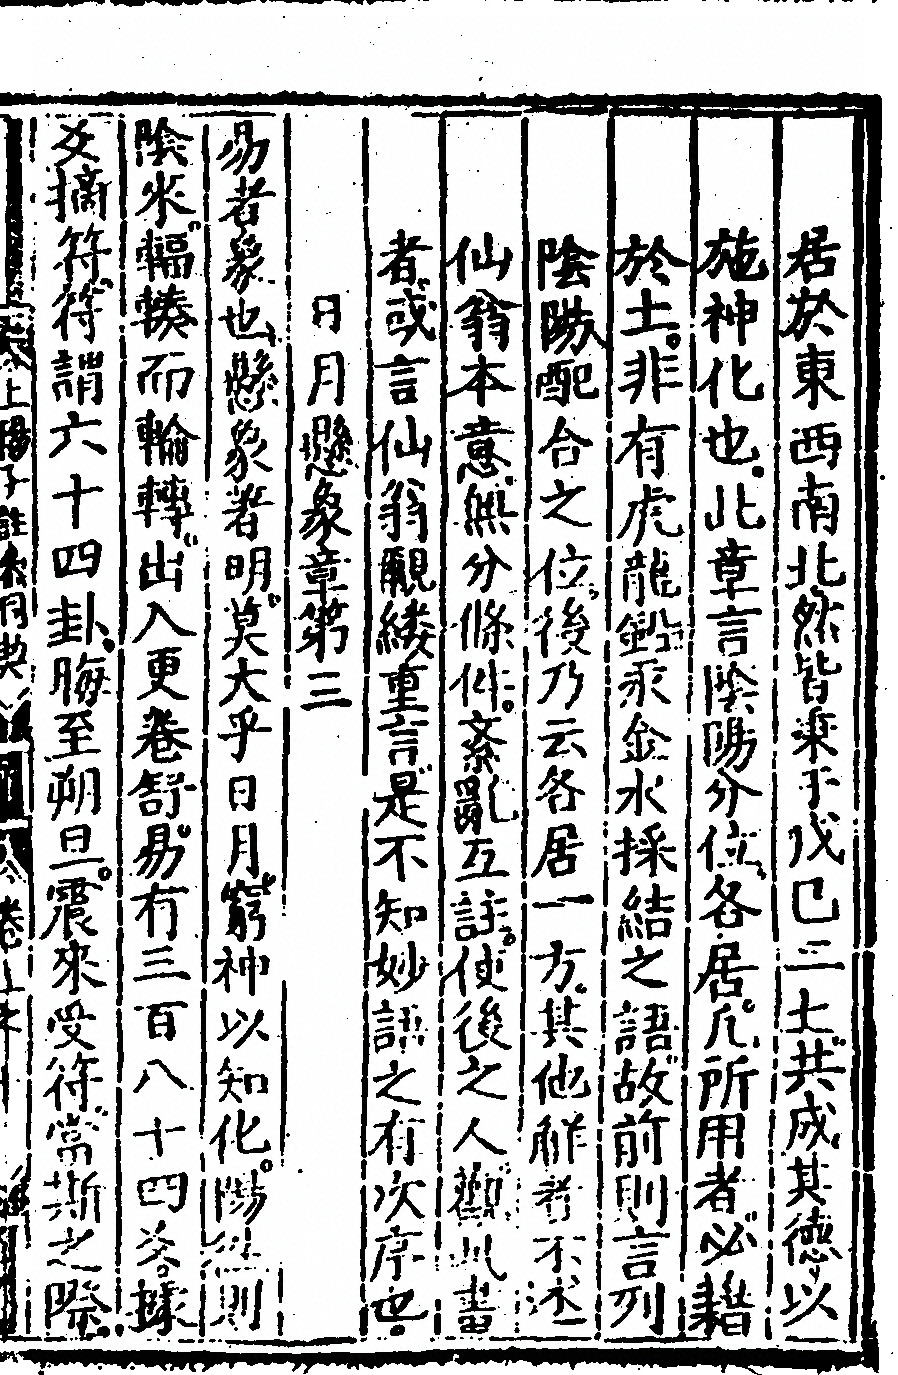 居於東西南北然皆稟乎戊己二土共成其德以
施神化也此章言陰陽分位各居凡所用者必藉
於土非有虎龍鉛汞金水採結之語故前則言列
陰陽配合之位後乃云各居一方其他解者不述
仙翁本意無分條件紊亂互註使後之人觀此書
者或言仙翁覼縷重言是不知妙語之有次序也
日月懸象章第三
易者象也懸象著明莫大乎日月窮神以知化陽往則
陰來輻輳而輪轉出入更卷舒易有三百八十四爻據
爻摘符符謂六十四卦晦至朔旦震來受符當斯之際
上陽子註參同契 卷上